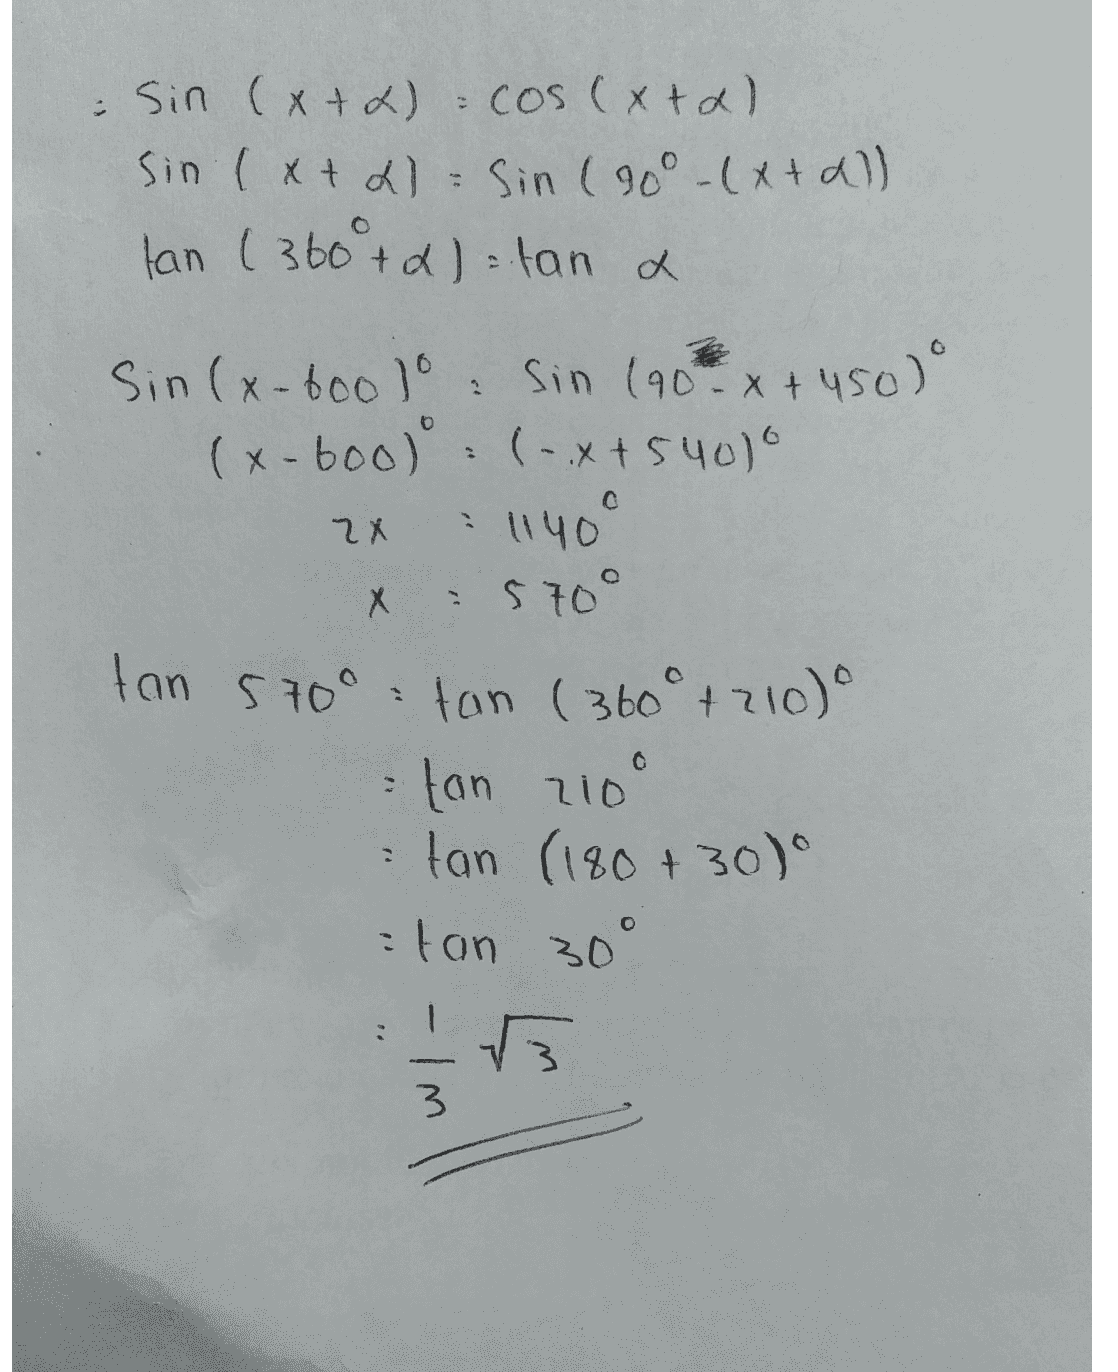 = Sin (x+α) = cos (x+α)
Sin (x+α) = Sin (90° -(x+α))
tan (360°+α) = tan α
Sin (x-600)° = Sin (90 - x + 450)°
(x-600)° = (-x+540)°
2x = 1140°
x = 570°
tan 570° = tan (360°+210)°
= tan 210°
= tan (180 + 30)°
= tan 30°
= 1/3 √3